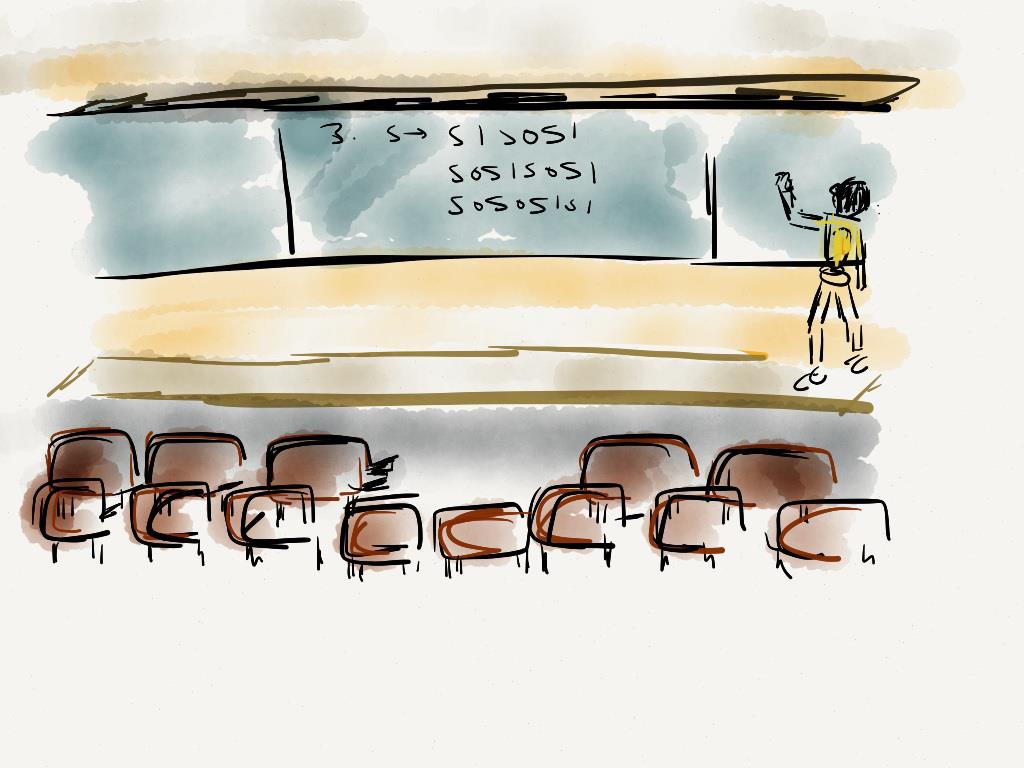 3. S→ S1S0S1
S0S1S0S1
S0S0S1S1